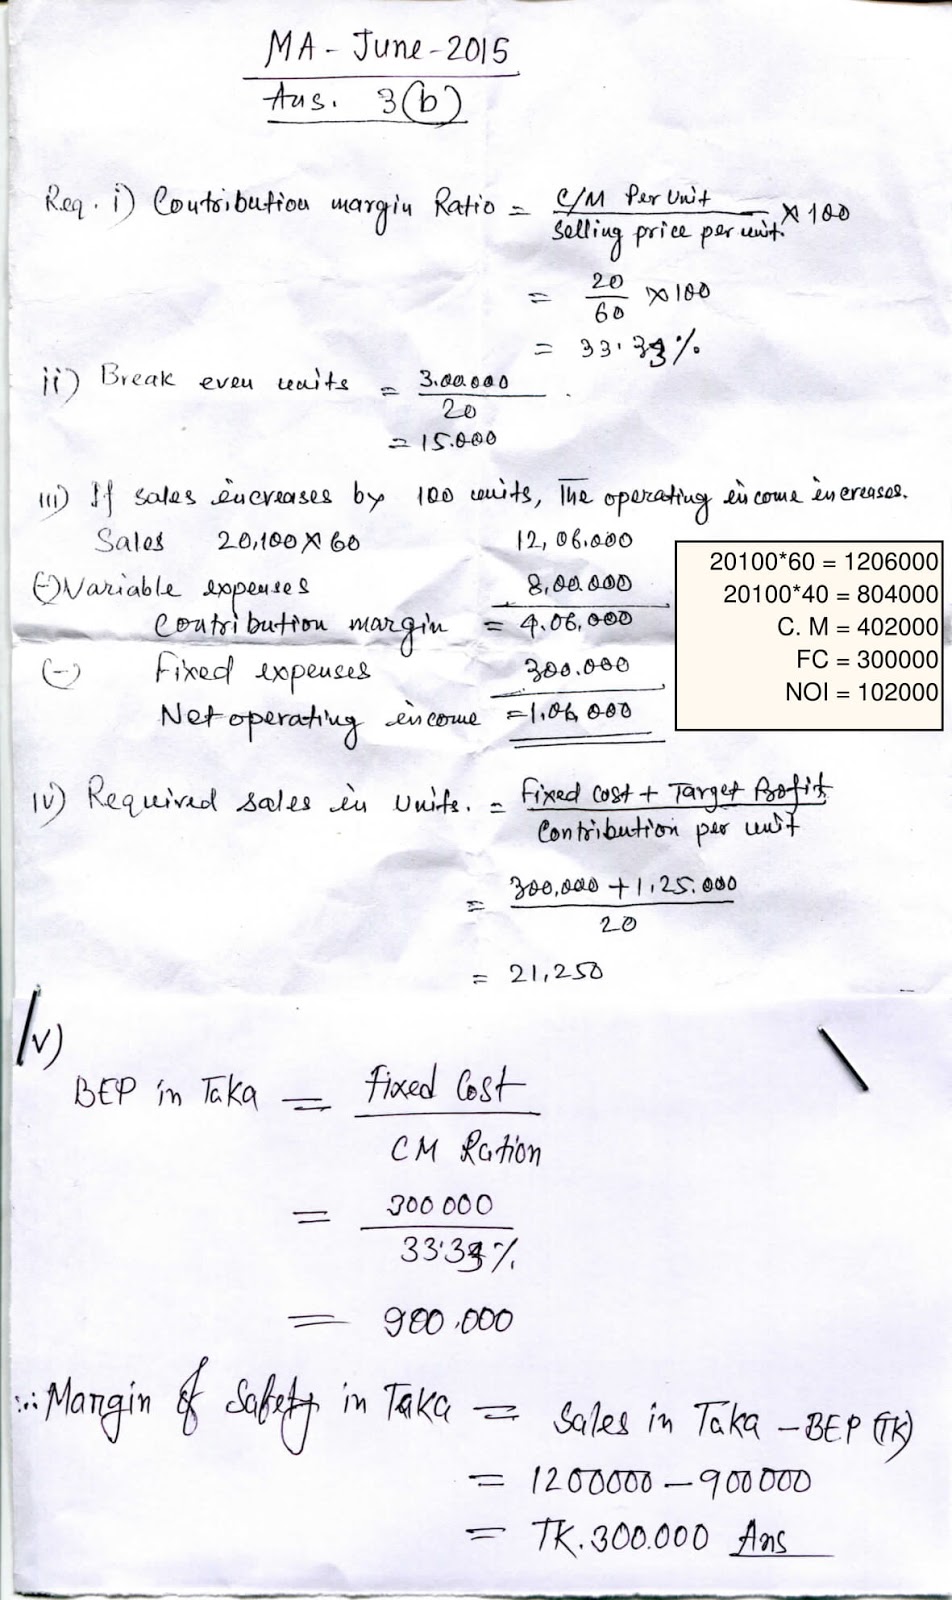 MA - June - 2015
Ans. 3(b)
Req. i) Contribution margin Ratio = C/M Per Unit / Selling price per unit. × 100
= 20 / 60 × 100
= 33.33%.
ii) Break even units = 3.00.000 / 20
= 15.000
iii) If sales increases by 100 units, The operating income increases.
Sales 20,100 × 60 12,06.000
(-) Variable expenses 8,00.000
Contribution margin = 4.06,000
(-) Fixed expenses 300.000
Net operating income = 1.06,000
20100*60 = 1206000
20100*40 = 804000
C. M = 402000
FC = 300000
NOI = 102000
iv) Required sales in units. = Fixed cost + Target Profit / Contribution per unit
= 300,000 + 1,25.000 / 20
= 21,250
v)
BEP in Taka = Fixed Cost / CM Ration
= 300 000 / 33.33%
= 900.000
∴ Margin of Safety in Taka = Sales in Taka - BEP (TK)
= 1200000 - 900000
= TK. 300.000 Ans